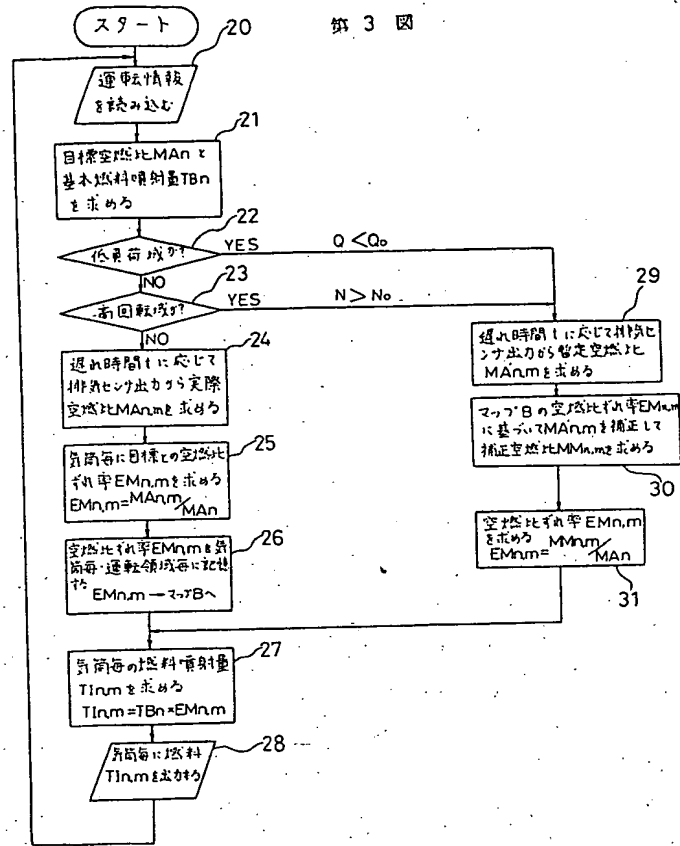 第 3 図
スタート
20
運転情報
を読み込む
21
目標空燃比MAnと
基本燃料噴射量TBn
を求める
22
低負荷域か?
YES
Q<Qo
NO
23
高回転域か?
YES
N>No
NO
24
遅れ時間tに応じて
排気センサ出力から実際
空燃比MAn,mを求める
25
気筒毎に目標との空燃比
ずれ率EMn,mを求める
EMn,m=MAn,m/MAn
26
空燃比ずれ率EMn,mを気
筒毎・運転領域毎に記憶
する
EMn,m→マップBへ
27
気筒毎の燃料噴射量
TIn,mを求める
TIn,m=TBn×EMn,m
28
気筒毎に燃料
TIn,mを出力する
29
遅れ時間tに応じて排気セ
ンサ出力から暫定空燃比
MA'n,mを求める
マップBの空燃比ずれ率EMn,m
に基づいてMA'n,mを補正して
補正空燃比MMn,mを求める
30
空燃比ずれ率EMn,m
を求める
EMn,m=MMn,m/MAn
31